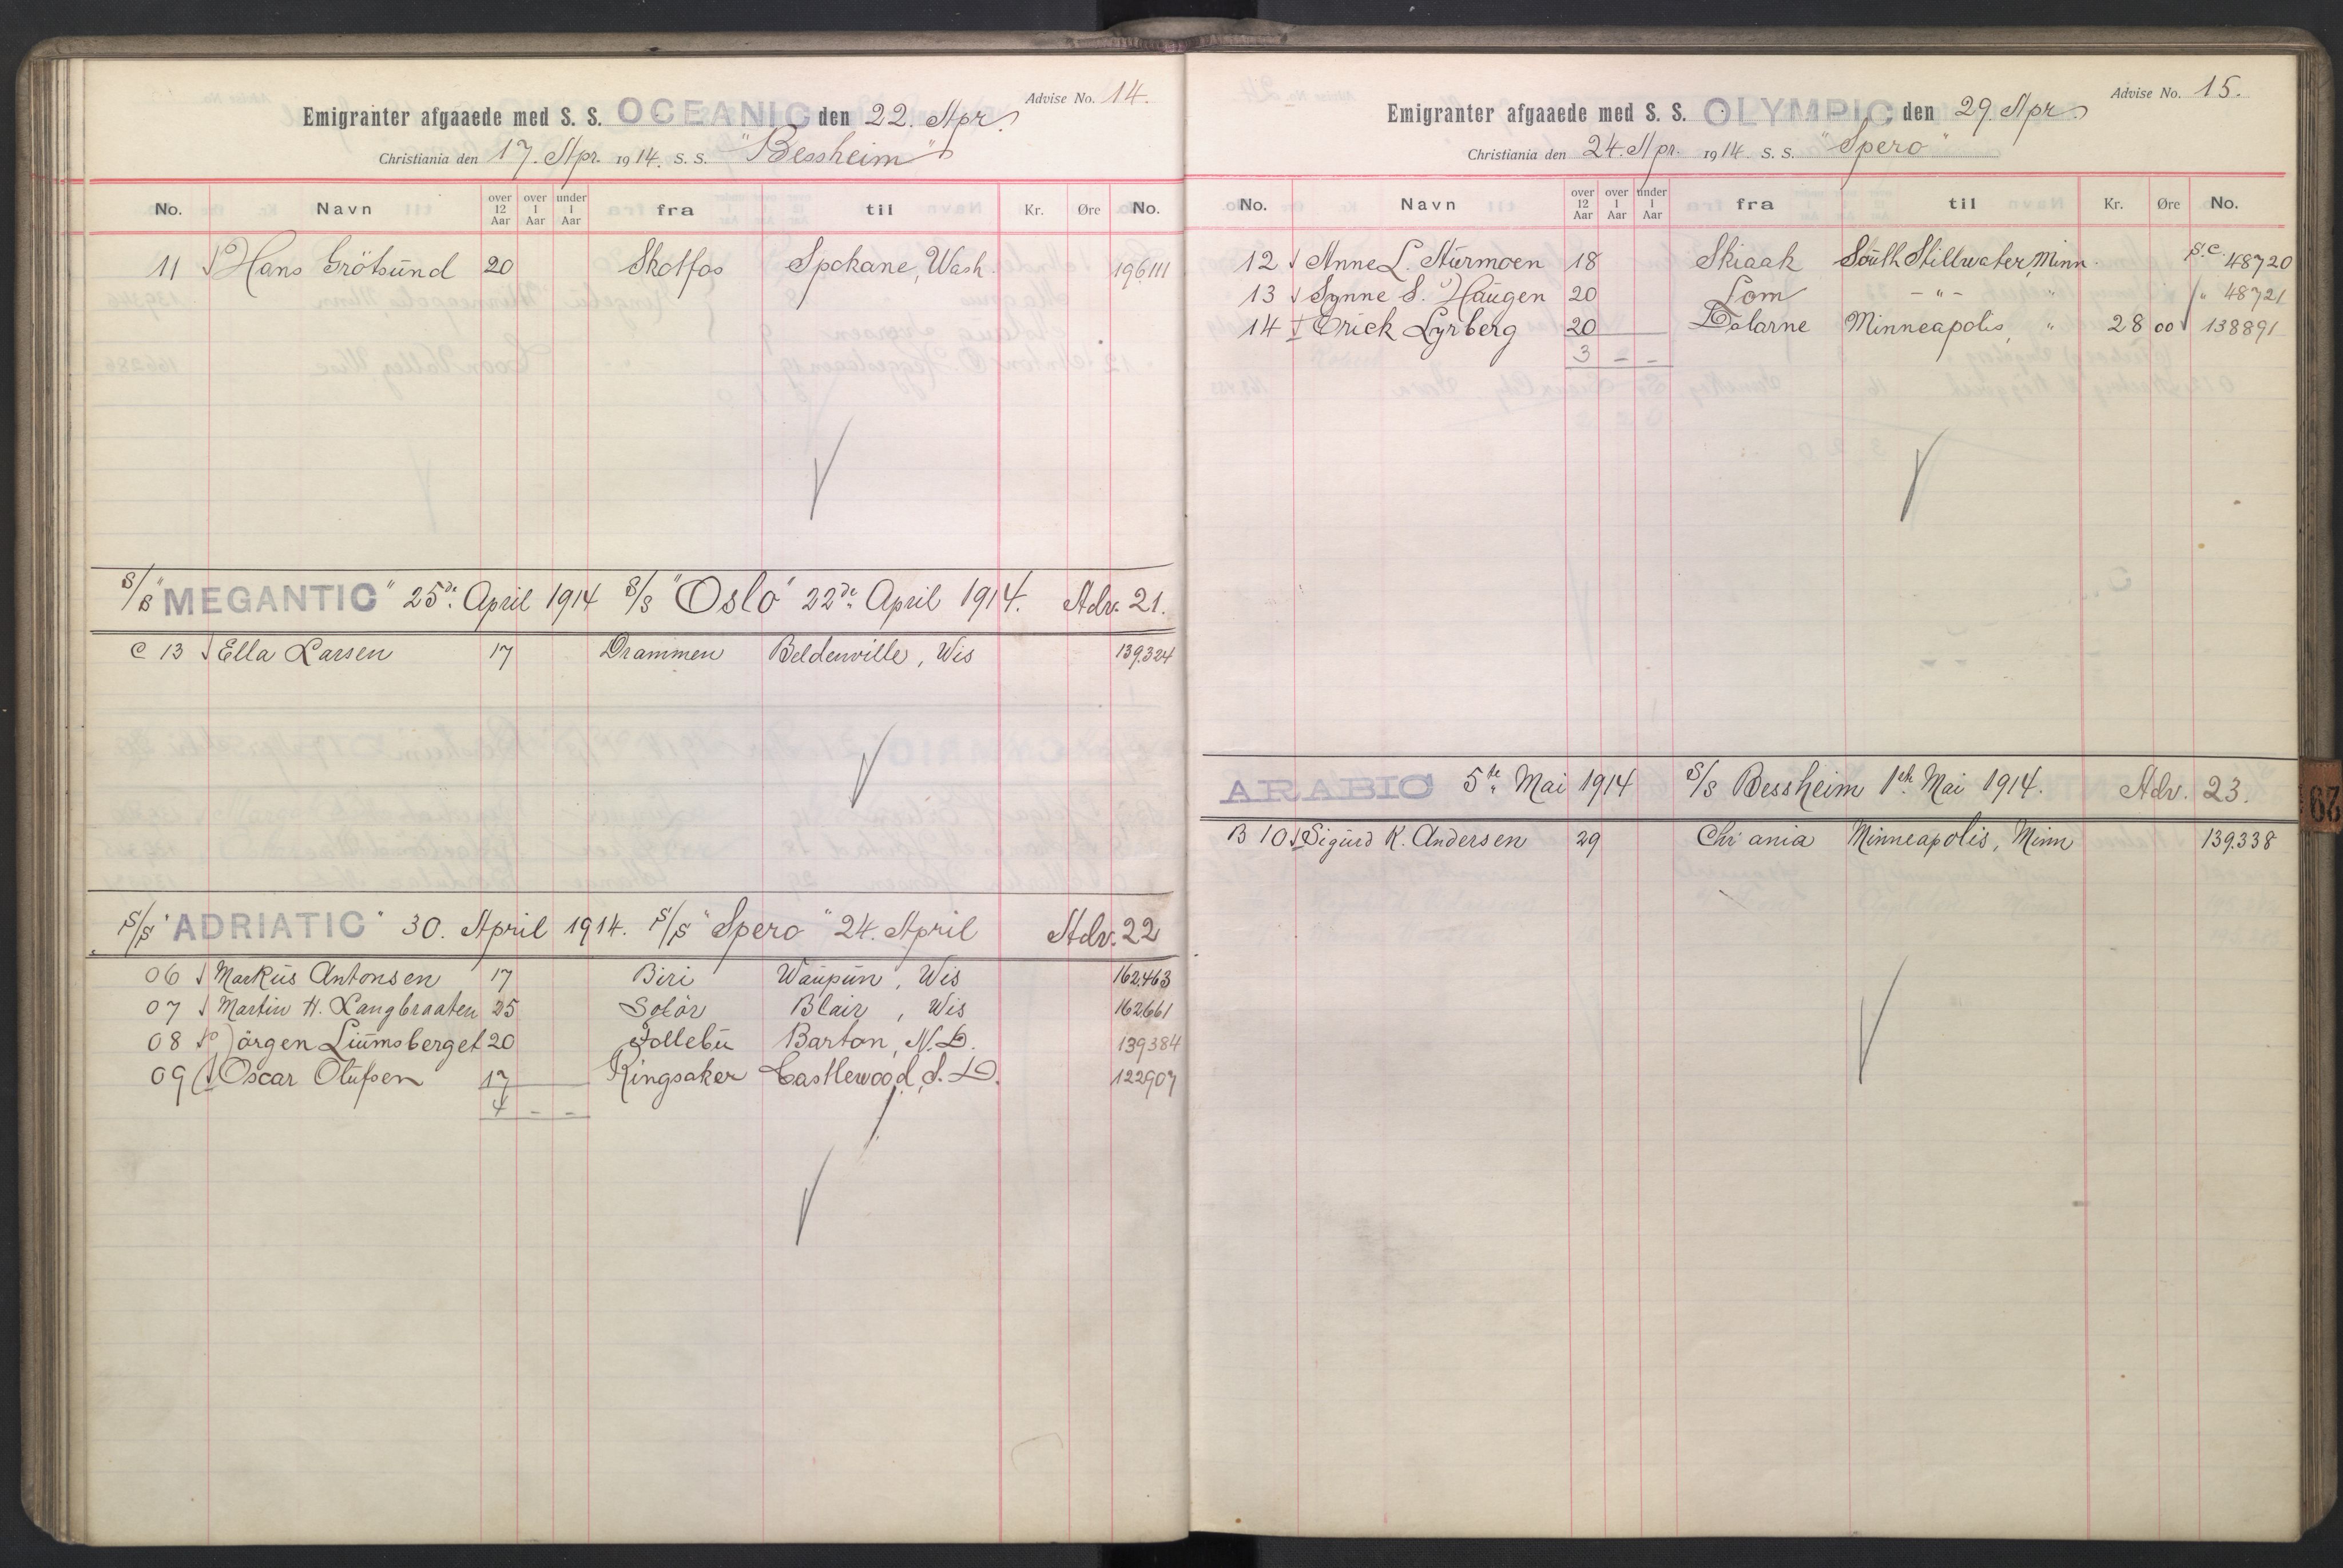 Advise No. 14.
Emigranter afgaaede med S. S. OCEANIC den 22. Apr.
Christiania den 17. Apr. 1914. S. S. "Bessheim"
No. Navn over 12 Aar over 1 Aar under 1 Aar fra til Kr. Øre No.
11 Hans Grötsund 20 Skotfos Spokane, Wash. 196111
S/S "MEGANTIC" 25de April 1914 S/S "Oslo" 22de April 1914. Adv. 21.
C 13 Ella Larsen 17 Drammen Beldenville, Wis 139324
S/S "ADRIATIC" 30. April 1914. S/S "Spero" 24. April Adv. 22
06 Markus Antonsen 17 Biri Waupun, Wis 162463
07 Martin H. Langbraaten 25 Solör Blair, Wis 162661
08 Jörgen Liumsberget 20 Follebu Barton, N.D. 139384
09 Oscar Olufsen 17 Ringsaker Castlewood, S.D. 122907
4 – –
Advise No. 15.
Emigranter afgaaede med S. S. OLYMPIC den 29. Apr.
Christiania den 24. Apr. 1914 S. S. "Spero"
No. Navn over 12 Aar over 1 Aar under 1 Aar fra til Kr. Øre No.
12 Anne L. Sturmoen 18 Skiaak South Stillwater, Minn. S.C. 48720
13 Synne S. Haugen 20 Lom – " – " " 48721
14 Erick Lyrberg 20 Dalarne Minneapolis, " 28 00 138891
3 – –
ARABIC 5te Mai 1914 S/S Bessheim 1ste Mai 1914. Adv. 23.
B 10 Sigurd K. Andersen 29 Chr ania Minneapolis, Minn 139.338